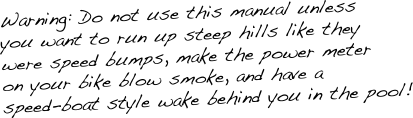 Warning: Do not use this manual unless
you want to run up steep hills like they
were speed bumps, make the power meter
on your bike blow smoke, and have a
speed-boat style wake behind you in the pool!